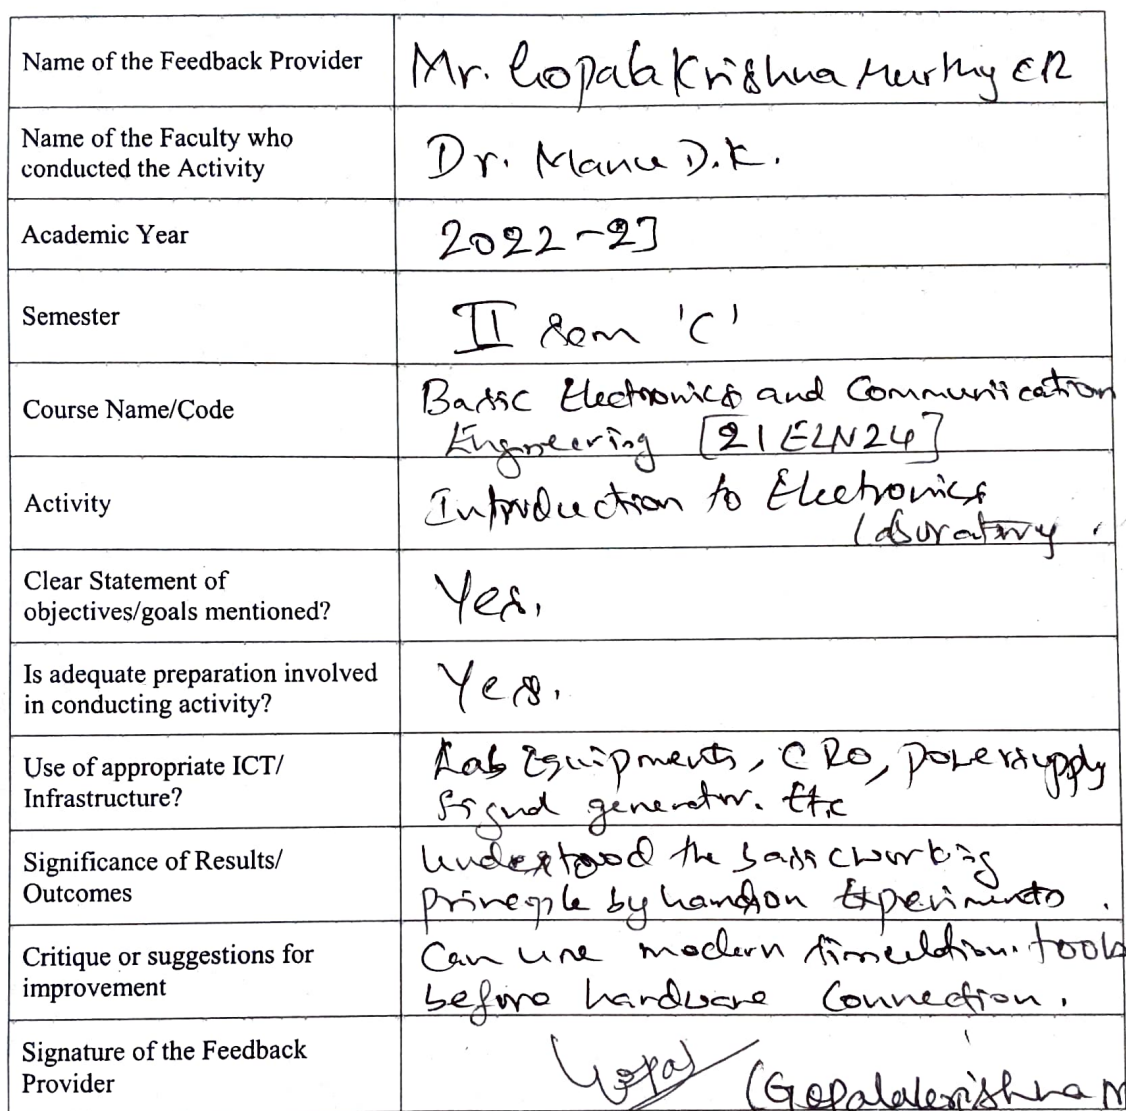 Name of the Feedback Provider
Mr. GopalaKrishna Murthy CR
Name of the Faculty who
conducted the Activity
Dr. Manu D.K.
Academic Year
2022-23
Semester
II Sem 'C'
Course Name/Code
Basic Electronics and Communication
Engineering [21ELN24]
Activity
Introduction to Electronics
Laboratory.
Clear Statement of
objectives/goals mentioned?
Yes.
Is adequate preparation involved
in conducting activity?
Yes.
Use of appropriate ICT/
Infrastructure?
Lab Equipments, CRO, powersupply
Signal generator. Etc
Significance of Results/
Outcomes
Understood the basic working
principle by handson Experiments.
Critique or suggestions for
improvement
Can use modern simulation tools
before hardware Connection.
Signature of the Feedback
Provider
Gopal
(Gopalakrishna M